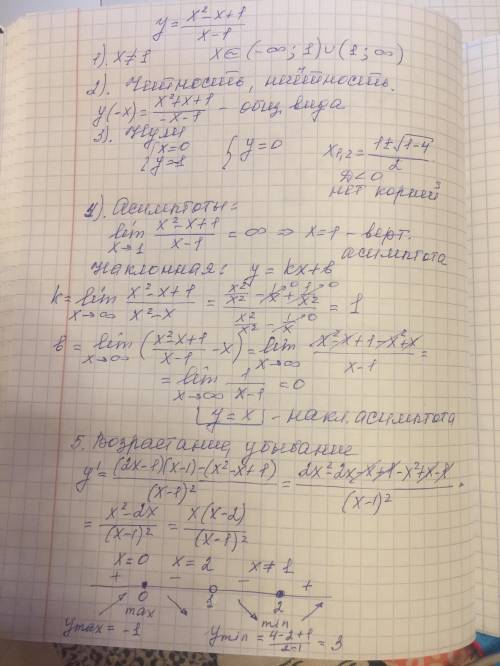 y = (x²-x+1)/(x-1)
1). x≠1   x∈(-∞;1)∪(1;∞)
2). Чётность, нечётность.
y(-x) = (x²+x+1)/(-x-1) - общ. вида
3). Нули
{x=0   {y=0   x₁,₂ = (1±√(1-4))/2
{y=1   D<0
нет корней
4). Асимптоты:
lim x→1 (x²-x+1)/(x-1) = ∞ ⇒ x=1 - верт. асимптота
Наклонная: y = kx+b
k = lim x→∞ (x²-x+1)/(x²-x) = (x²/x² - 1/x→0 + 1/x²→0)/(x²/x² - 1/x→0) = 1
b = lim x→∞ ((x²-x+1)/(x-1) - x) = lim x→∞ (x²-x+1-x²+x)/(x-1) =
= lim x→∞ 1/(x-1) = 0
y=x - накл. асимптота
5. Возрастание, убывание
y' = ((2x-1)(x-1)-(x²-x+1))/(x-1)² = (2x²-2x-x+1-x²+x-1)/(x-1)²
= (x²-2x)/(x-1)² = x(x-2)/(x-1)²
x=0   x=2   x≠1
+ - - +
0 1 2
max min
y max = -1   y min = (4-2+1)/(2-1) = 3